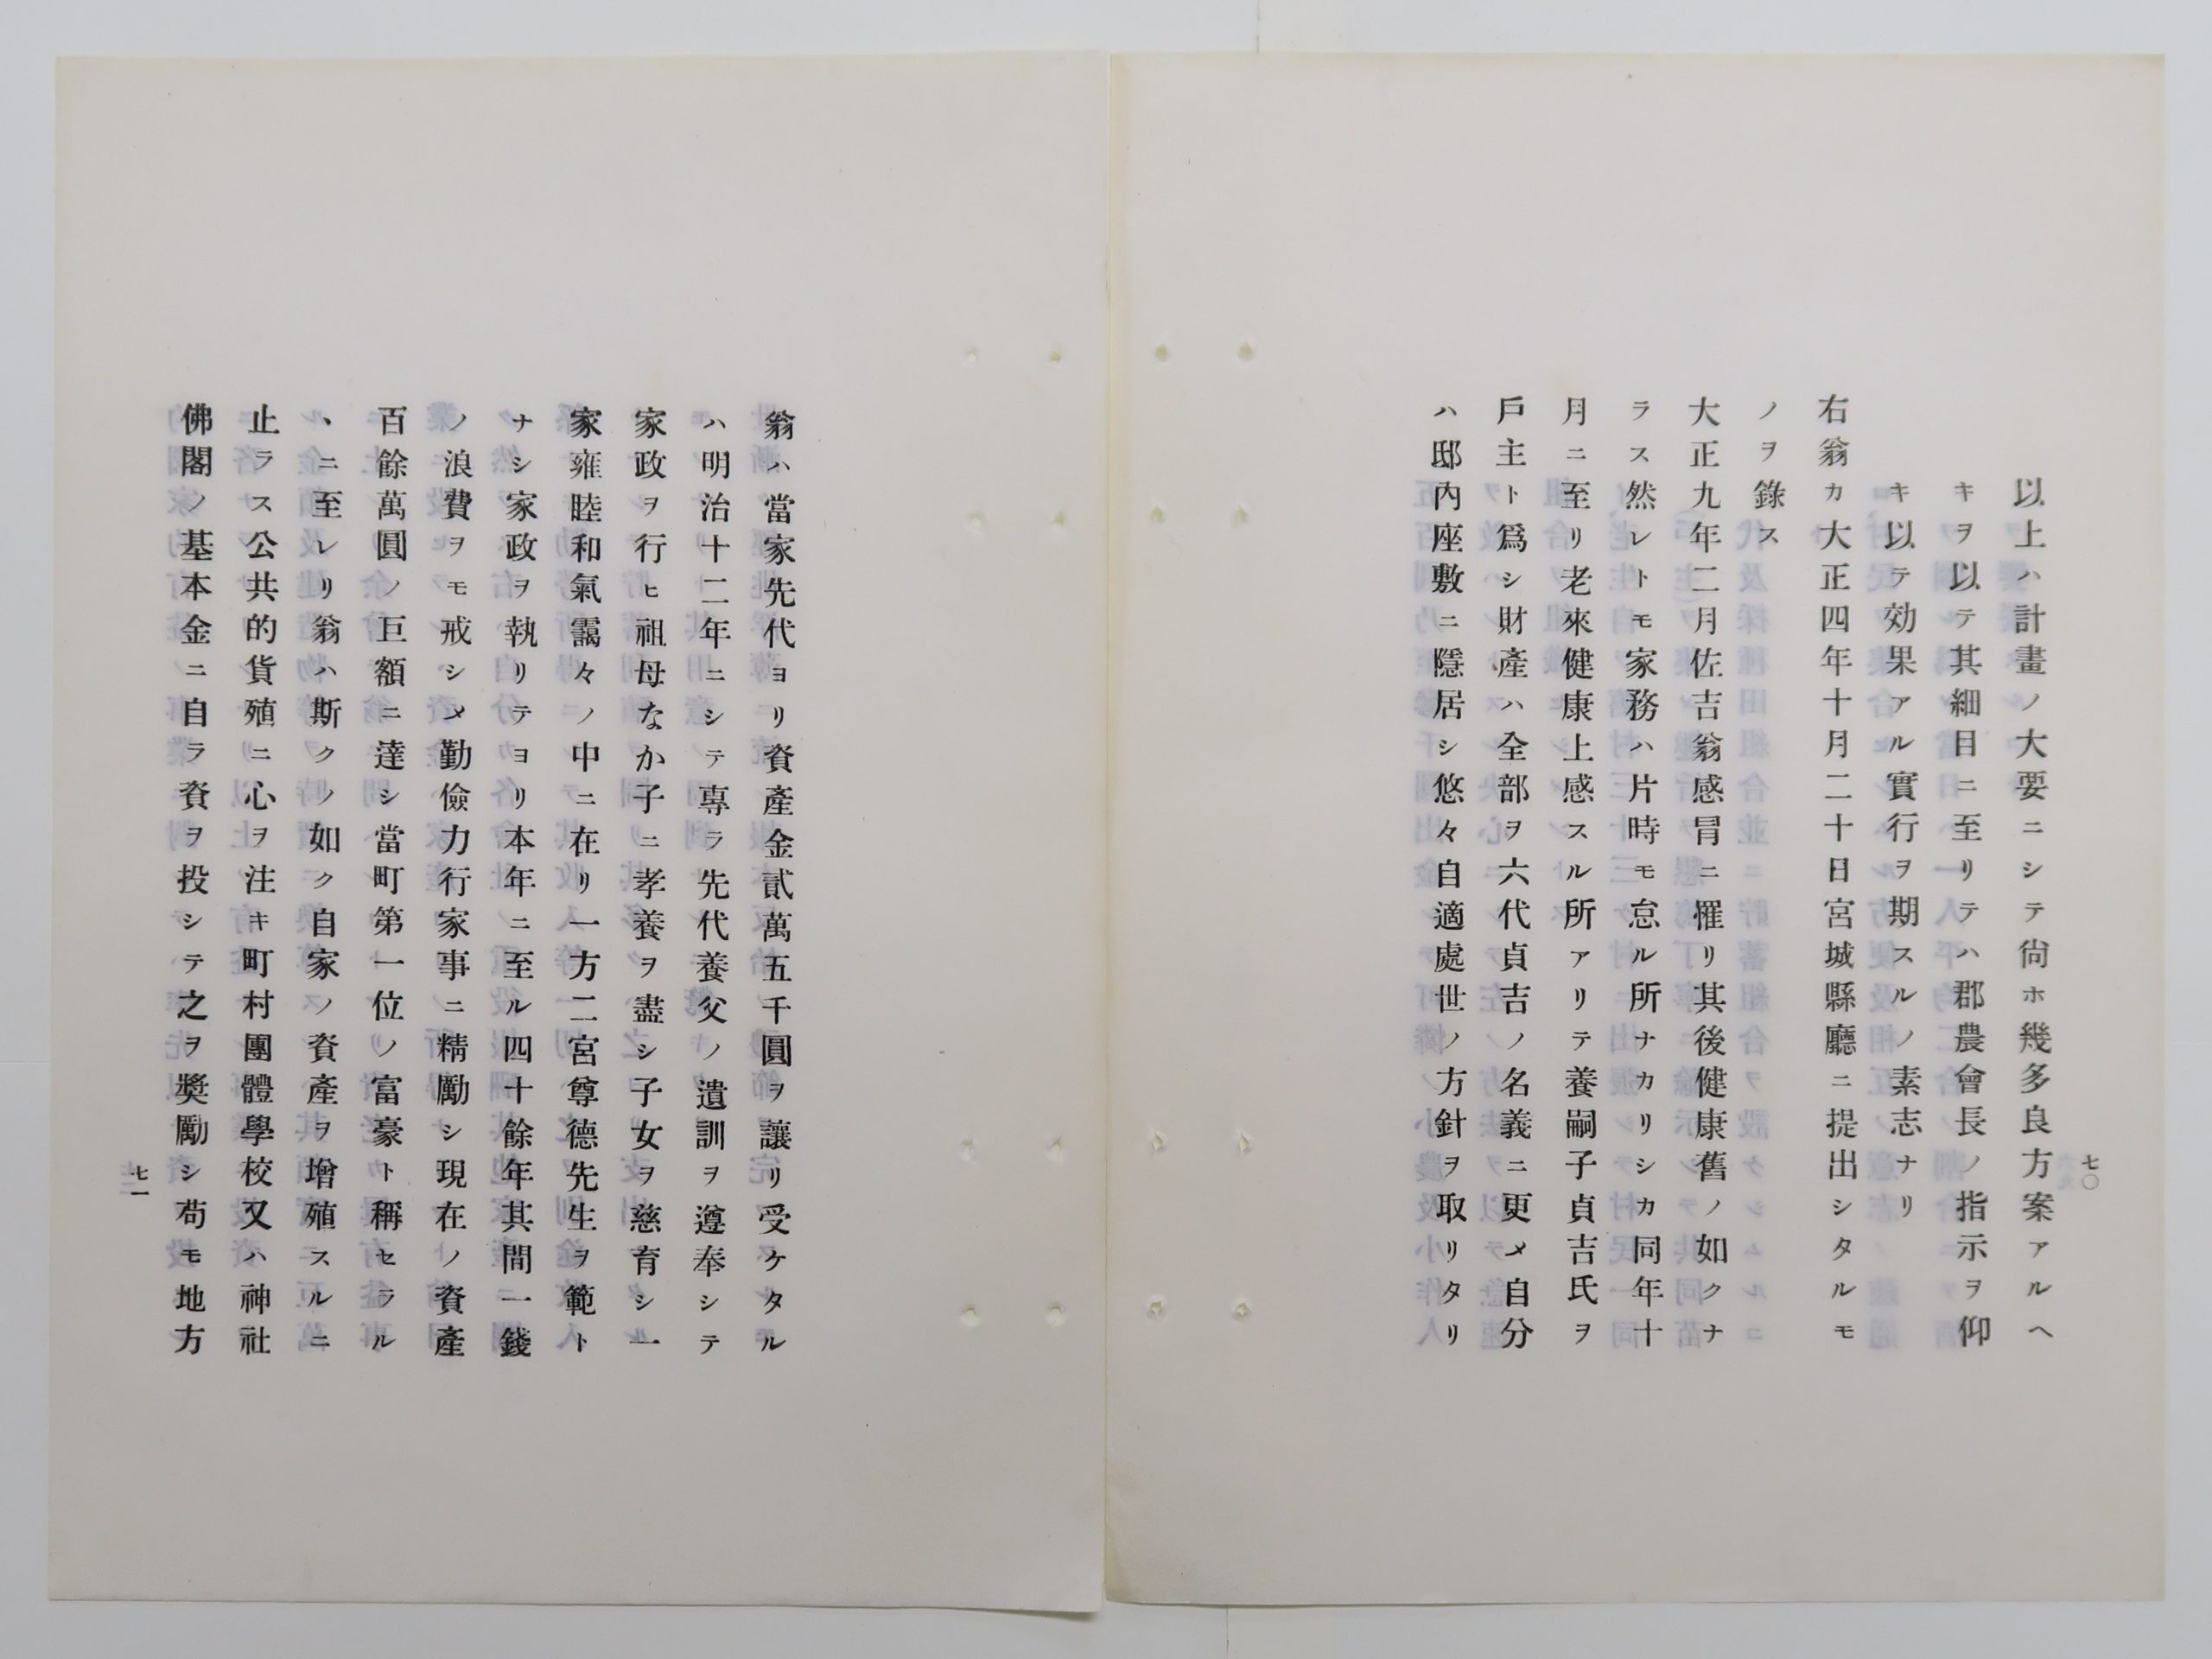 七〇
以上ハ計畫ノ大要ニシテ尙ホ幾多良方案アルヘ
キヲ以テ其細目ニ至リテハ郡農會長ノ指示ヲ仰
キ以テ効果アル實行ヲ期スルノ素志ナリ
右翁カ大正四年十月二十日宮城縣廳ニ提出シタルモ
ノヲ錄ス
大正九年二月佐吉翁感冒ニ罹リ其後健康舊ノ如クナ
ラス然レトモ家務ハ片時モ怠ル所ナカリシカ同年十
月ニ至リ老來健康上感スル所アリテ養嗣子貞吉氏ヲ
戶主ト爲シ財產ハ全部ヲ六代貞吉ノ名義ニ更メ自分
ハ邸內座敷ニ隱居シ悠々自適處世ノ方針ヲ取リタリ
翁ハ當家先代ヨリ資產金貳萬五千圓ヲ讓リ受ケタル
ハ明治十二年ニシテ專ラ先代養父ノ遺訓ヲ遵奉シテ
家政ヲ行ヒ祖母なか子ニ孝養ヲ盡シ子女ヲ慈育シ一
家雍睦和氣靄々ノ中ニ在リ一方二宮尊德先生ヲ範ト
ナシ家政ヲ執リテヨリ本年ニ至ル四十餘年其間一錢
ノ浪費ヲモ戒シメ勤儉力行家事ニ精勵シ現在ノ資產
百餘萬圓ノ巨額ニ達シ當町第一位ノ富豪ト稱セラル
ヽニ至レリ翁ハ斯クノ如ク自家ノ資產ヲ增殖スルニ
止ラス公共的貨殖ニ心ヲ注キ町村團體學校又ハ神社
佛閣ノ基本金ニ自ラ資ヲ投シテ之ヲ奬勵シ苟モ地方
七一